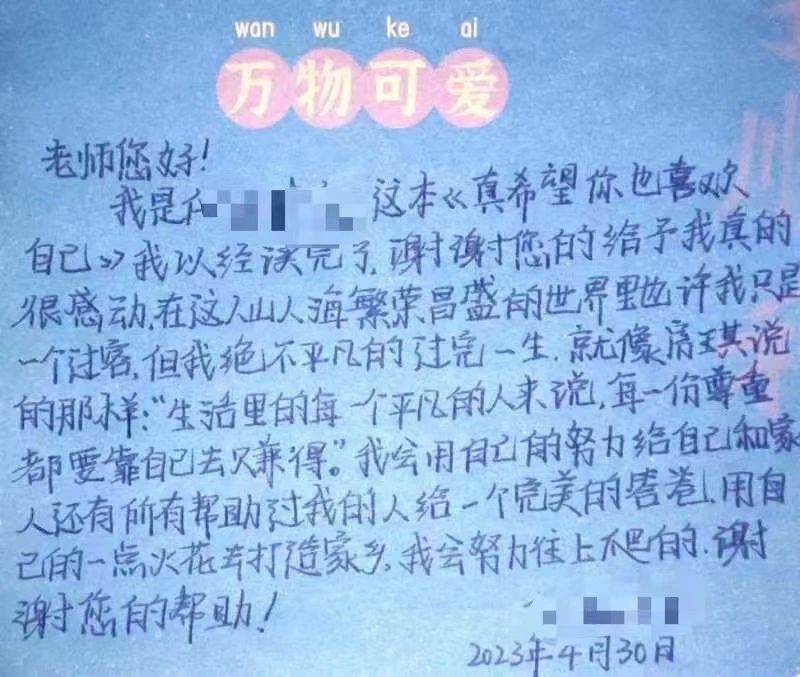 wan wu ke ai
万物可爱
老师您好!
我是 这本《真希望你也喜欢
自己》我以经读完了,谢谢您的给予我真的
很感动,在这人山人海繁荣昌盛的世界里也许我只是
一个过客,但我绝不平凡的过完一生,就像房琪说
的那样:“生活里的每一个平凡的人来说,每一份尊重
都要靠自己去赚得。”我会用自己的努力给自己和家
人还有所有帮助过我的人给一个完美的答卷,用自
己的一点火花去打造家乡,我会努力往上爬的,谢
谢您的帮助!
2023年4月30日